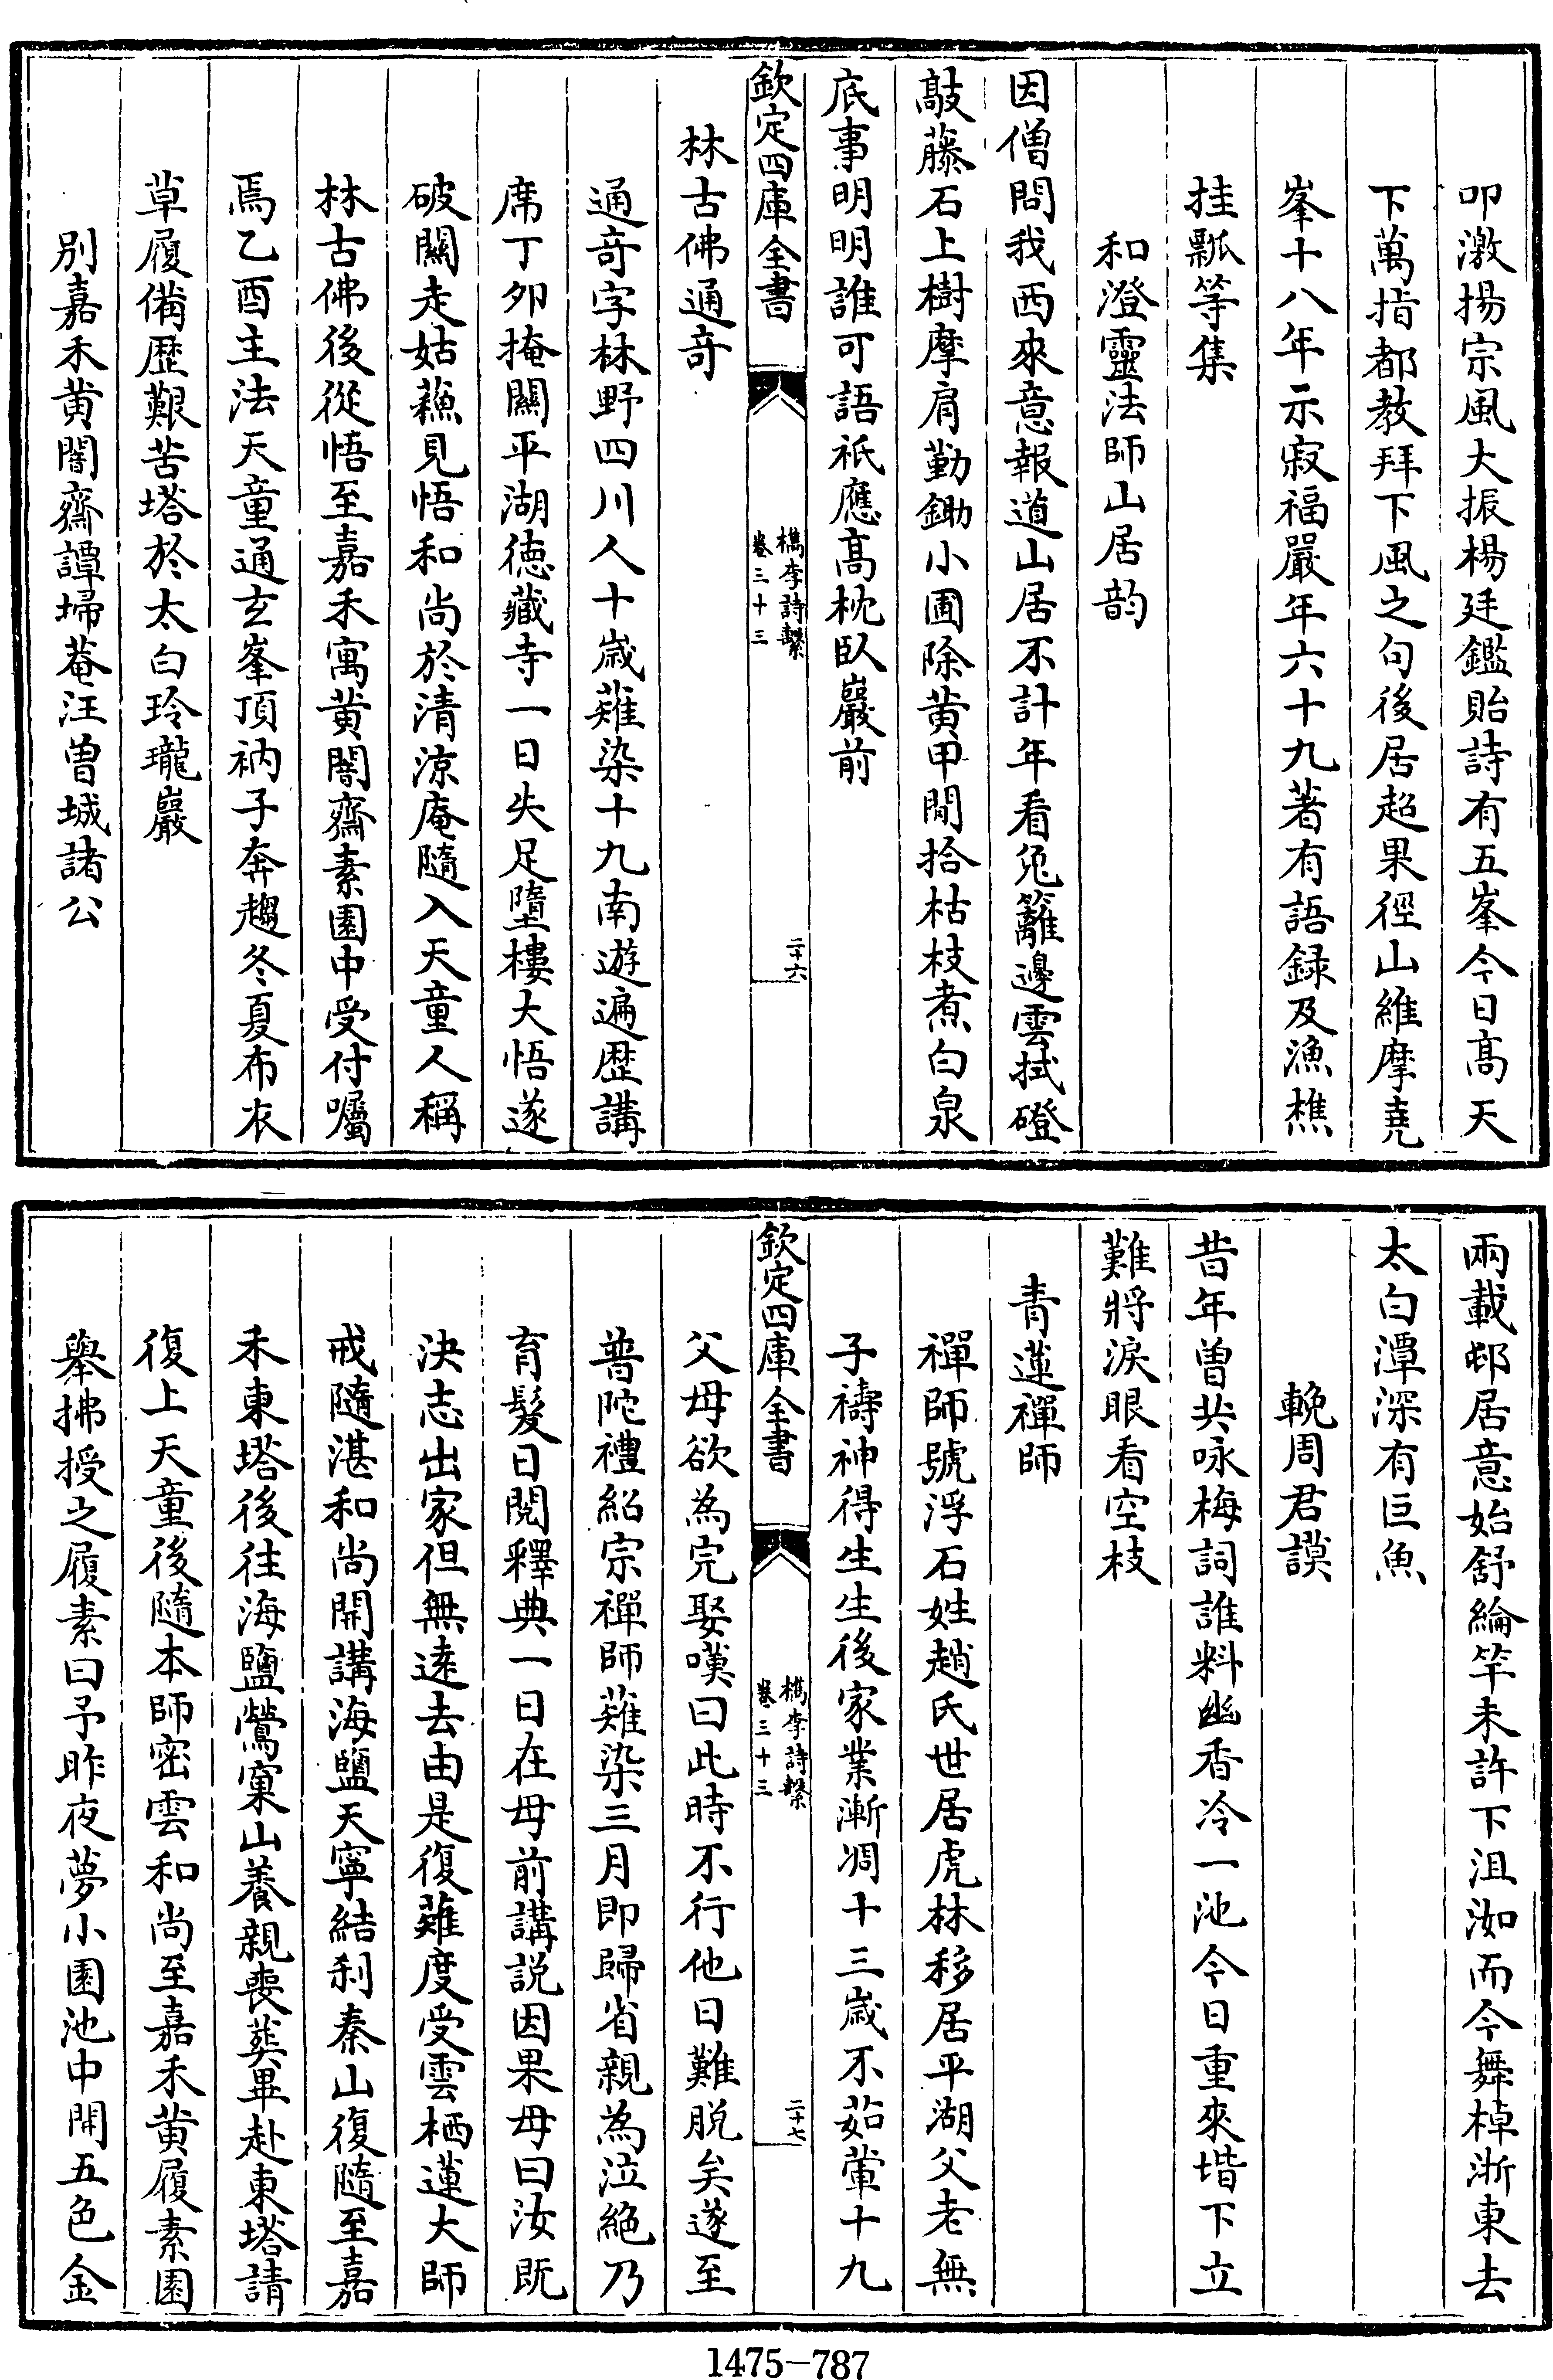 叩激揚宗風大振楊廷鑑貽詩有五峯今日高天
下萬指都教拜下風之句後居超果徑山維摩堯
峯十八年示寂福嚴年六十九著有語録及漁樵
挂瓢等集
和澄靈法師山居韵
因僧問我西來意報道山居不計年看兎籬邊雲拭磴
敲藤石上樹摩肩勤鋤小圃除黄甲閒拾枯枝煮白泉
底事明明誰可語祇應髙枕臥巖前
欽定四庫全書
檇李詩繫
卷三十三
二十六
林古佛通竒
通竒字林野四川人十歲薙染十九南遊遍歴講
席丁夘掩關平湖徳藏寺一日失足墮樓大悟遂
破關走姑蘇見悟和尚於清涼庵隨入天童人稱
林古佛後從悟至嘉禾寓黄闇齋素園中受付囑
焉乙酉主法天童通玄峯頂衲子奔趨冬夏布衣
草履備歴艱苦塔於太白玲瓏巖
别嘉禾黄闇齋譚埽菴汪曾城諸公
兩載邨居意始舒綸竿未許下沮洳而今舞棹淅東去
太白潭深有巨魚
輓周君謨
昔年曾共咏梅詞誰料幽香冷一池今日重來堦下立
難將淚眼看空枝
青蓮禪師
禪師號浮石姓趙氏世居虎林移居平湖父老無
子禱神得生生後家業漸凋十三歲不茹葷十九
欽定四庫全書
檇李詩繫
卷三十三
二十七
父母欲為完娶嘆曰此時不行他日難脱矣遂至
普陀禮紹宗禪師薙染三月即歸省親為泣絶乃
育髮日閱釋典一日在母前講説因果母曰汝既
決志出家但無逺去由是復薙度受雲栖蓮大師
戒隨湛和尚開講海鹽天寧結刹秦山復隨至嘉
禾東塔後往海鹽鶯窠山養親喪葬畢赴東塔請
復上天童後隨本師密雲和尚至嘉禾黄履素園
舉拂授之履素曰予昨夜夢小園池中開五色金
1475-787